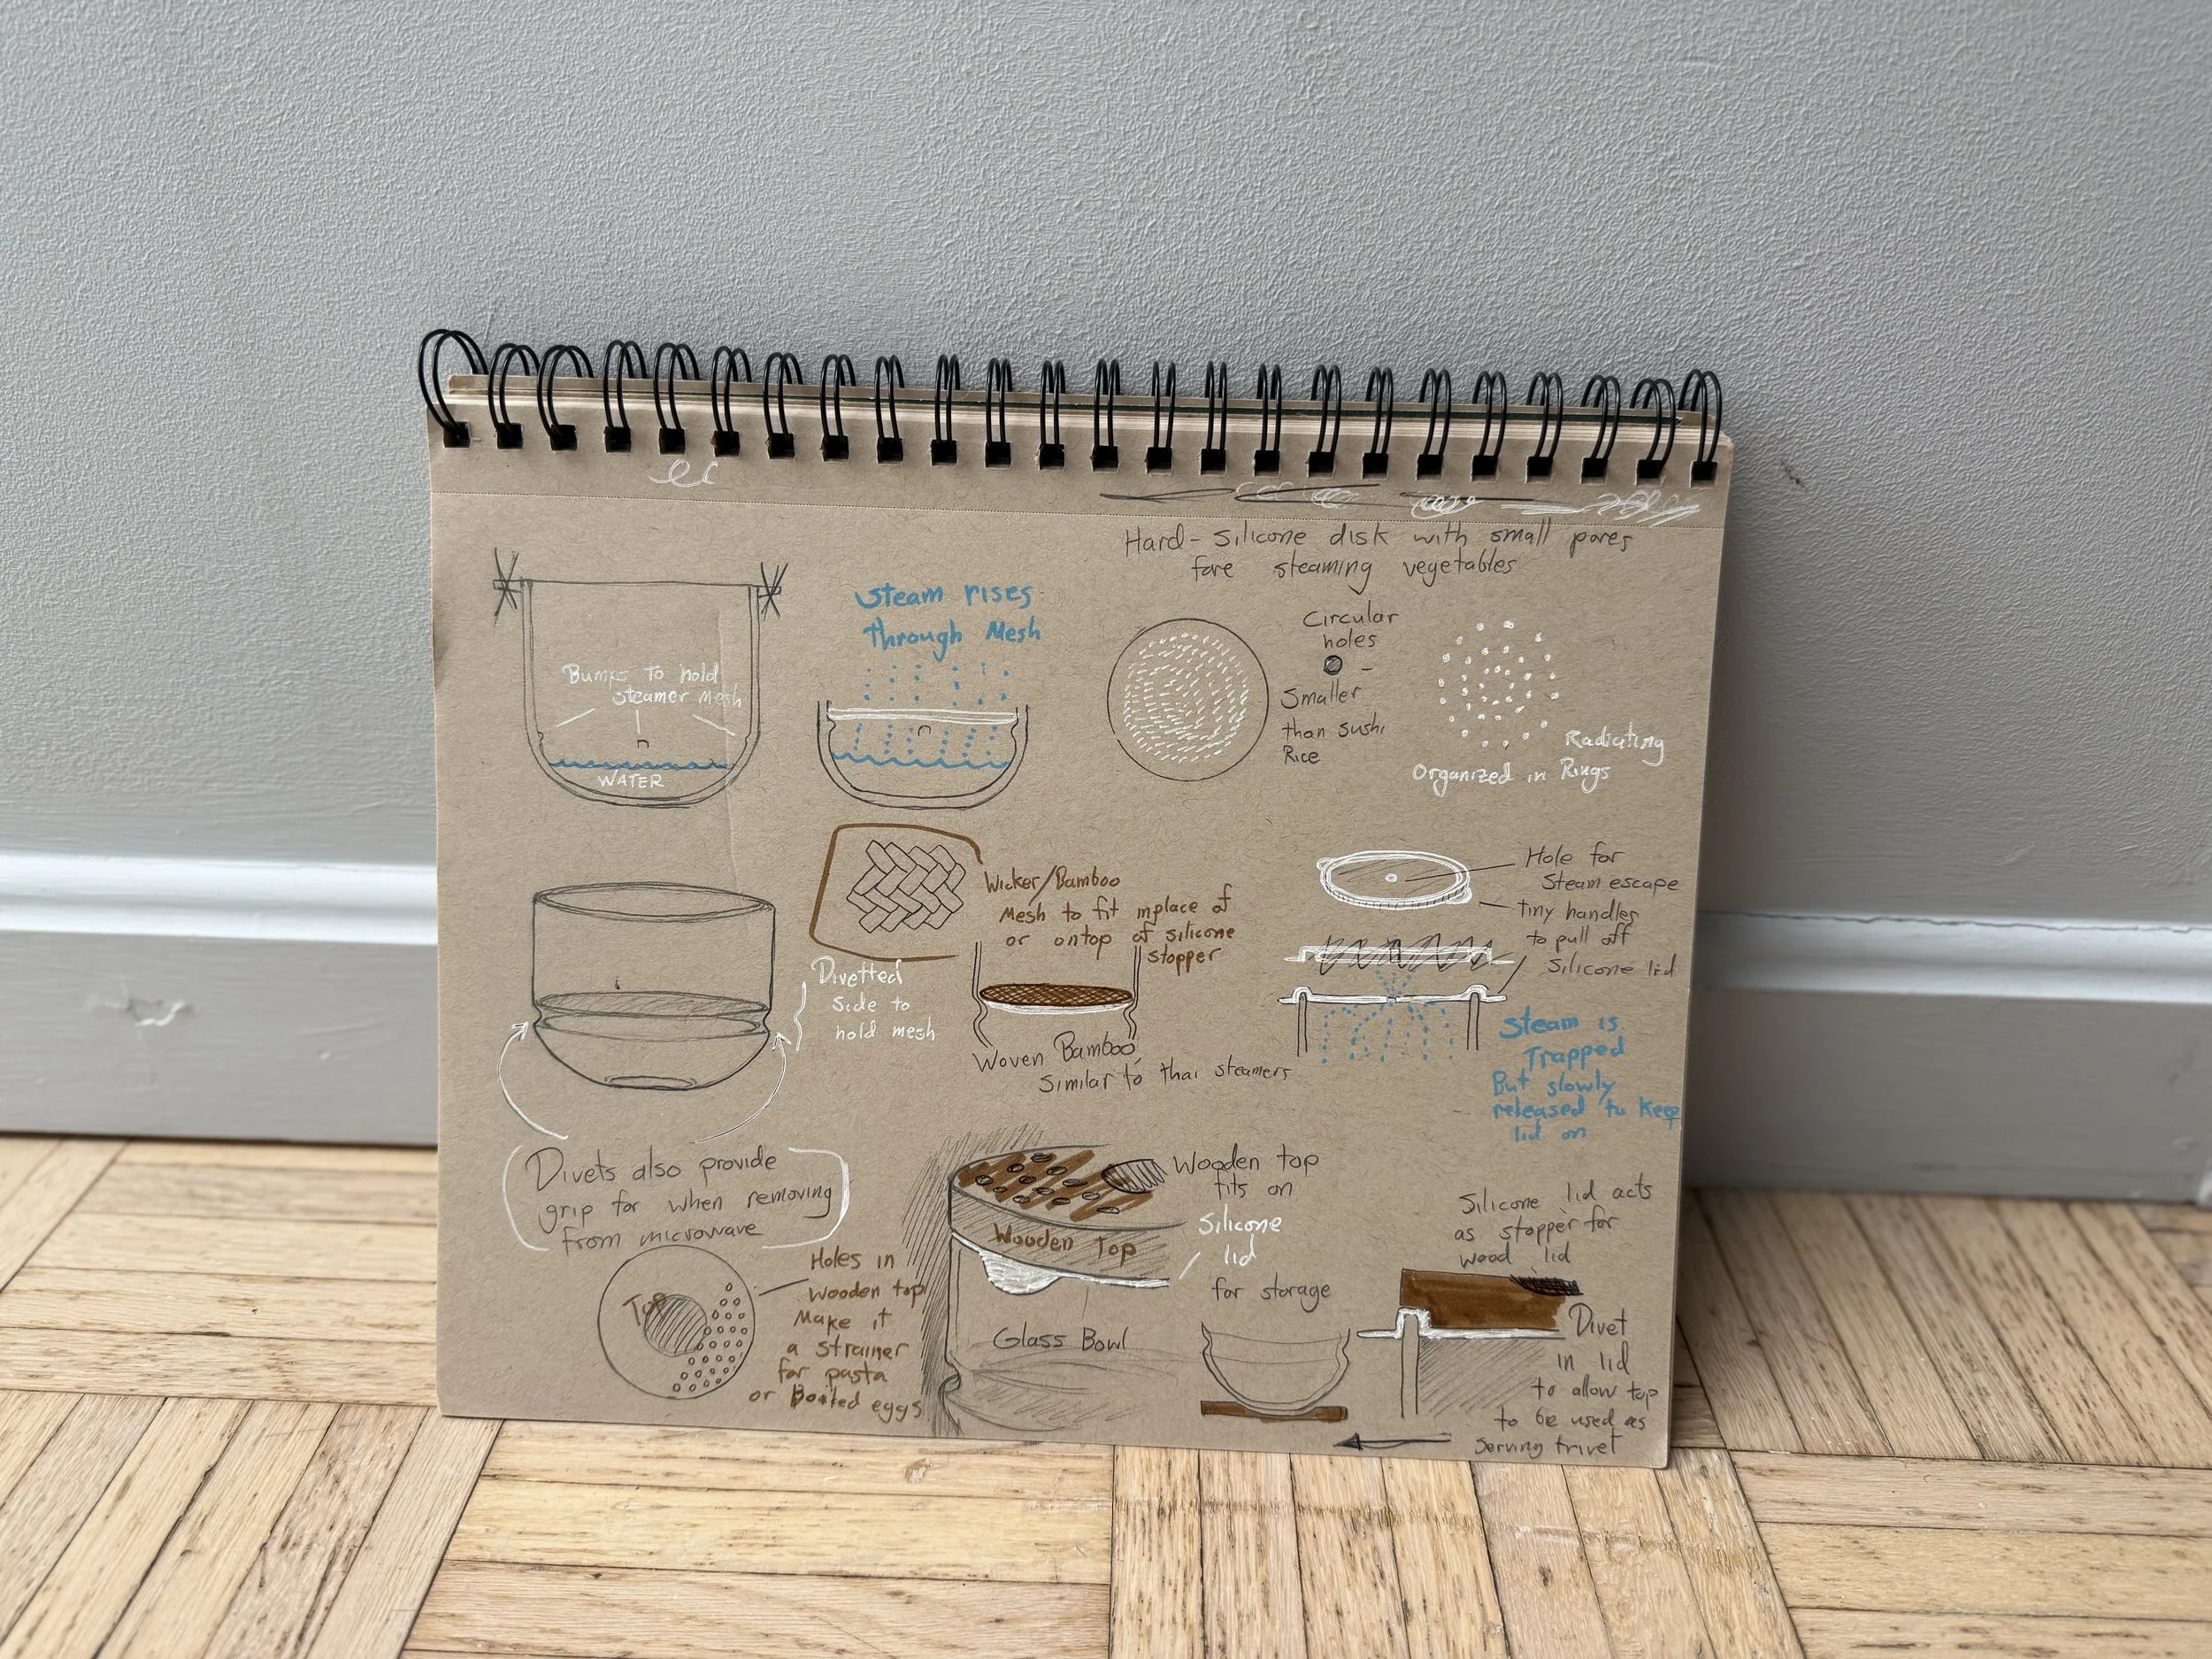 Hard-Silicone disk with small pores
fore steaming vegetables
Bumps to hold
steamer mesh
WATER
Steam rises
through Mesh
Circular
holes
Smaller
than sushi
Rice
Radiating
Organized in Rings
Wicker/Bamboo
Mesh to fit inplace of
or ontop of silicone
stopper
Divetted
Side to
hold mesh
Woven Bamboo
Similar to thai steamers
Hole for
Steam escape
tiny handles
to pull off
Silicone lid
Steam is
Trapped
But slowly
released to keep
lid on
Divets also provide
grip for when removing
from microwave
Top
Holes in
Wooden top
Make it
a strainer
for pasta
or Boiled eggs
Wooden top
fits on
Silicone
lid
for storage
Wooden Top
Glass Bowl
Silicone lid acts
as stopper for
wood lid
Divet
in lid
to allow top
to be used as
serving trivet